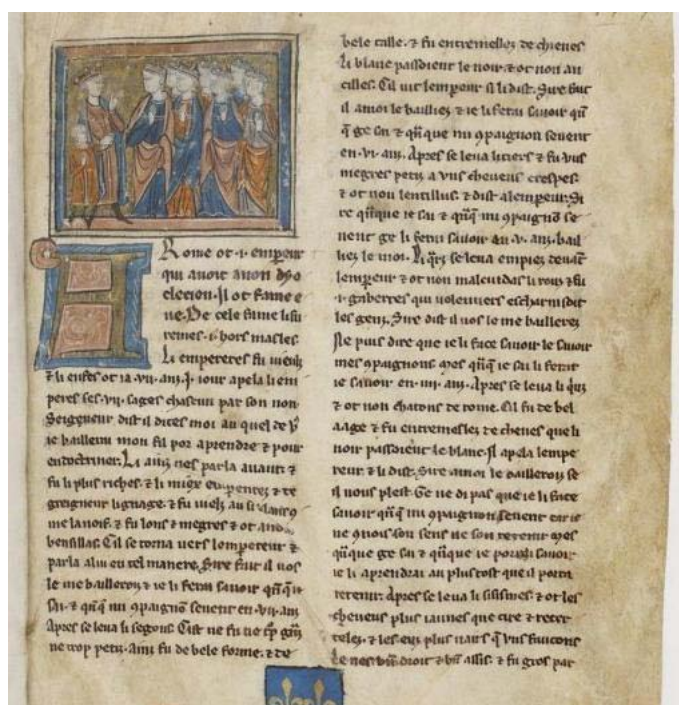 A Rome ot .i. emp̄eur
qui auoit anon dyo
clecion. Il ot fame e
ue. De cele fame li fu
remes .i. hors masles.
Li empereres fu uieuz
⁊ li enfes ot ia .vii. anz. .i. iour apela li em
peres ses .vii. sages chascun par son non
Seigneur dist il dites moi au quel de vͦ
ie bailleroi mon fil por aprendre ⁊ pour
endoctriner. Li ainz nes parla auant. ⁊
fu li plus riches. ⁊ li miex enparentez ⁊ de
greigneur lignage. ⁊ fu uielz au si
me la noif. ⁊ fu lons ⁊ megres ⁊ ot a non
bensillas. Cil se torna uers lempereur ⁊
parla alui en tel maniere. Sire fait il uos
le me bailleroiz ⁊ ie li ferai sauoir qn̄q̄ ie
sai. ⁊ qn̄q̄ mi ꝯpaignō seuent en .vii. anz
Apres se leua li segons. Cist ne fu ne
ne trop petiz. Ainz fu de bele forme. ⁊ de
bele taille. ⁊ fu entremellez de cheneus
li blanc passoient le noir ⁊ ot non an
cilles. Cil uit lempereur si li dist. Sire fait
il a moi le bailliez ⁊ ie li ferai sauoir qn̄
q̄ ge sai ⁊ qn̄que mi ꝯpaignon seuent
en .vi. anz. Apres se leua li tiers ⁊ fu vns
megres petiz a vns cheueus crespes.
⁊ ot non lentillus. ⁊ dist alempereur. Si
re qn̄que ie sai ⁊ qn̄q̄ mi ꝯpaignō se
uent ge li ferai sauoir au .v. anz. bail
liez le moi. Li qrz se leua empiez deuāt
lempereur ⁊ ot non malcuidas li rous ⁊ fu
.i. gaberres qui volentiers escharnisoit
les genz. Sire dist il uos le me bailleroiz
Ne puis dire que ie li face sauoir le sauoir
mes ꝯpaignons. Mes qn̄q̄ ie sai li ferai
ie sauoir en .iiii. anz. Apres se leua li qinz
⁊ ot non chatons de rome. Cil fu de bel
aage ⁊ fu entremeslez de chenes que li
noir passoient le blanc. Il apela lempe
reur. ⁊ li dist. Sire a moi le bailleroiz se
il uous plest. Ge ne di pas que ie li face
sauoir qn̄q̄ mi ꝯpaignon seuent car ie
ne ꝯnois son sens ne son retenir. Mes
qn̄que ge sai ⁊ qn̄que ie porai sauoir
ie li aprendrai au plus tost que il porra
retenir. Apres se leua li sisismes. ⁊ ot les
cheueus plus iaunes que cire ⁊ recer
celez. ⁊ les euz plus uairs q̄ vns faucons
Le nes bn̄ droit ⁊ bn̄ assis. ⁊ fu gros par